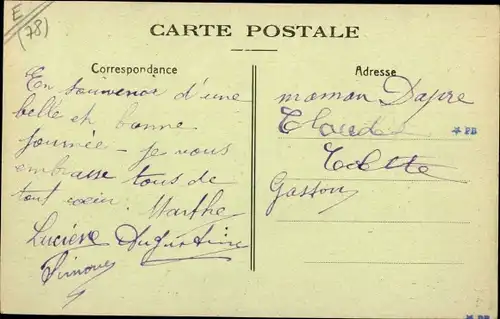 E
(78)
CARTE POSTALE
Correspondance
En souvenir d'une
belle et bonne
journée - je vous
embrasse tous de
tout cœur. Marthe
Lucienne Augustine
Simone
Adresse
maman
Claude
* PB
Colette
Gaston
* PB